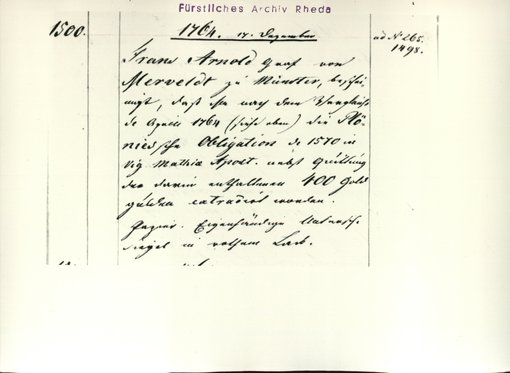 Fürstliches Archiv Rheda
1500.
1764. 17. Dezember
ad No 265.
1498.
Franz Arnold Graf von
Merveldt zu Münster, beschei-
nigt, daß ihm nach dem Vergleich
de Aprili 1764 (siehe oben) die
Obligation de 1570 in
vig. Mathiæ Apost. nebst Quittung
der darin enthaltenen 400 Gold
gulden extradirt worden.
Papier. Eigenhändige Untersch.
Siegel in rothem Lack.